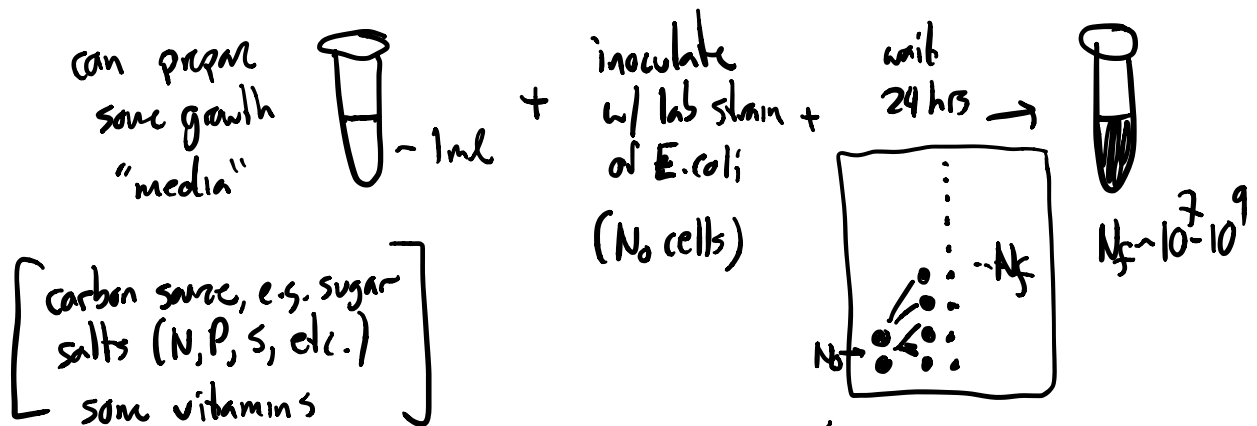 can prepare
some growth
"media"
~ 1ml
+
inoculate
w/ lab strain
of E.coli
(N₀ cells)
+
wait
24 hrs →
N_f ~ 10⁷-10⁹
[carbon source, e.g. sugar
salts (N, P, S, etc.)
some vitamins]
N₀→
...N_f